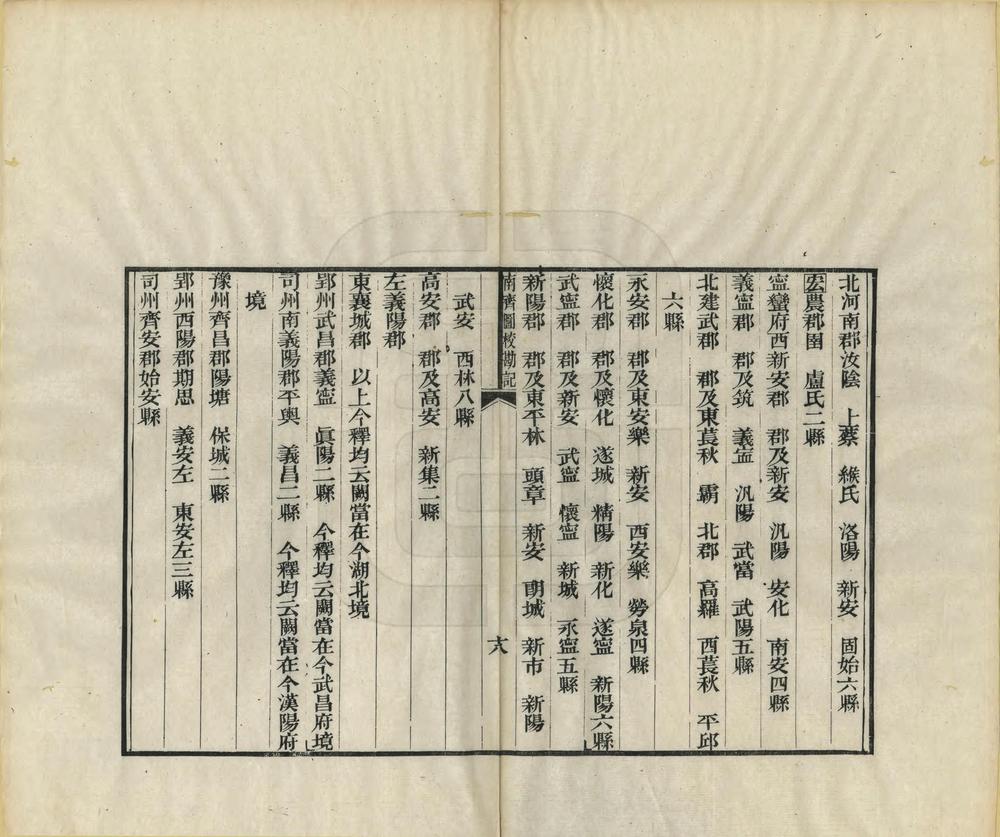 北河南郡汝陰　上蔡　緱氏　洛陽　新安　固始六縣
宏農郡圉　盧氏二縣
寧蠻府西新安郡　郡及新安　汎陽　安化　南安四縣
義寧郡　郡及筑　義寧　汎陽　武當　武陽五縣
北建武郡　郡及東萇秋　霸　北郡　高羅　西萇秋　平邱
六縣
永安郡　郡及東安樂　新安　西安樂　勞泉四縣
懷化郡　郡及懷化　遂城　精陽　新化　遂寧　新陽六縣
武寧郡　郡及新安　武寧　懷寧　新城　永寧五縣
新陽郡　郡及東平林　頭章　新安　朗城　新市　新陽
南齊圖校勘記　六
武安　西林八縣
高安郡　郡及高安　新集二縣
左義陽郡
東襄城郡　以上今釋均云闕當在今湖北境
郢州武昌郡義寧　眞陽二縣　今釋均云闕當在今武昌府境
司州南義陽郡平輿　義昌二縣　今釋均云闕當在今漢陽府
境
豫州齊昌郡陽塘　保城二縣
郢州西陽郡期思　義安左　東安左三縣
司州齊安郡始安縣